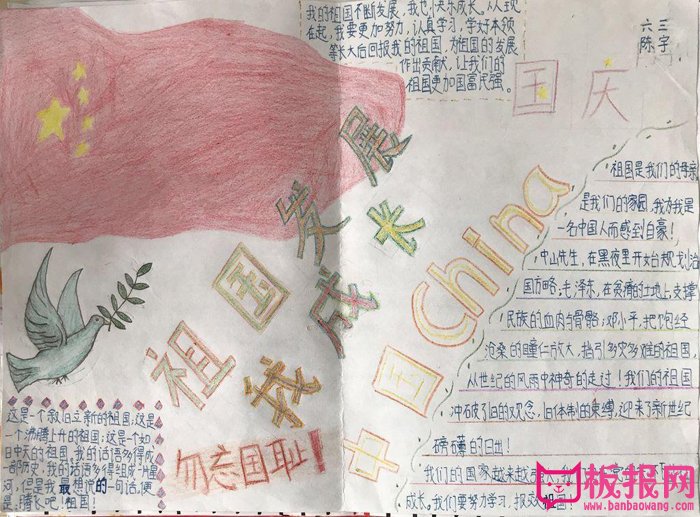 我的祖国不断发展，我也快乐成长。从现
在起，我要更加努力，认真学习，学好本领
等长大后回报我的祖国，为祖国的发展
作出贡献，让我们的
祖国更加国富民强。
六三
陈宇
国庆
祖国发展
我成长
中国China
祖国是我们的母亲
是我们的家园，我为我是
一名中国人而感到自豪！
中山先生，在黑夜里开始规划治
国方略。毛泽东，在贫瘠的土地上，支撑
民族的血肉与骨骼；邓小平，把饱经
沧桑的瞳仁放大，指引多灾多难的祖国，
从世纪的风雨中神奇的走过！我们的祖国
冲破了旧的观念，旧体制的束缚，迎来了新世纪
磅礴的日出！
我们的国家越来越
成长。我们要努力学习，报效祖国！
这是一个叙旧立新的祖国；这是
一个沸腾上升的祖国；这是一个如
日中天的祖国。我的话语多得成一
部历史，我的话语多得组成一片星
河，但是我最想说的一句话，便
是：腾飞吧！祖国！
勿忘国耻！
板报网
www.banbaowang.com